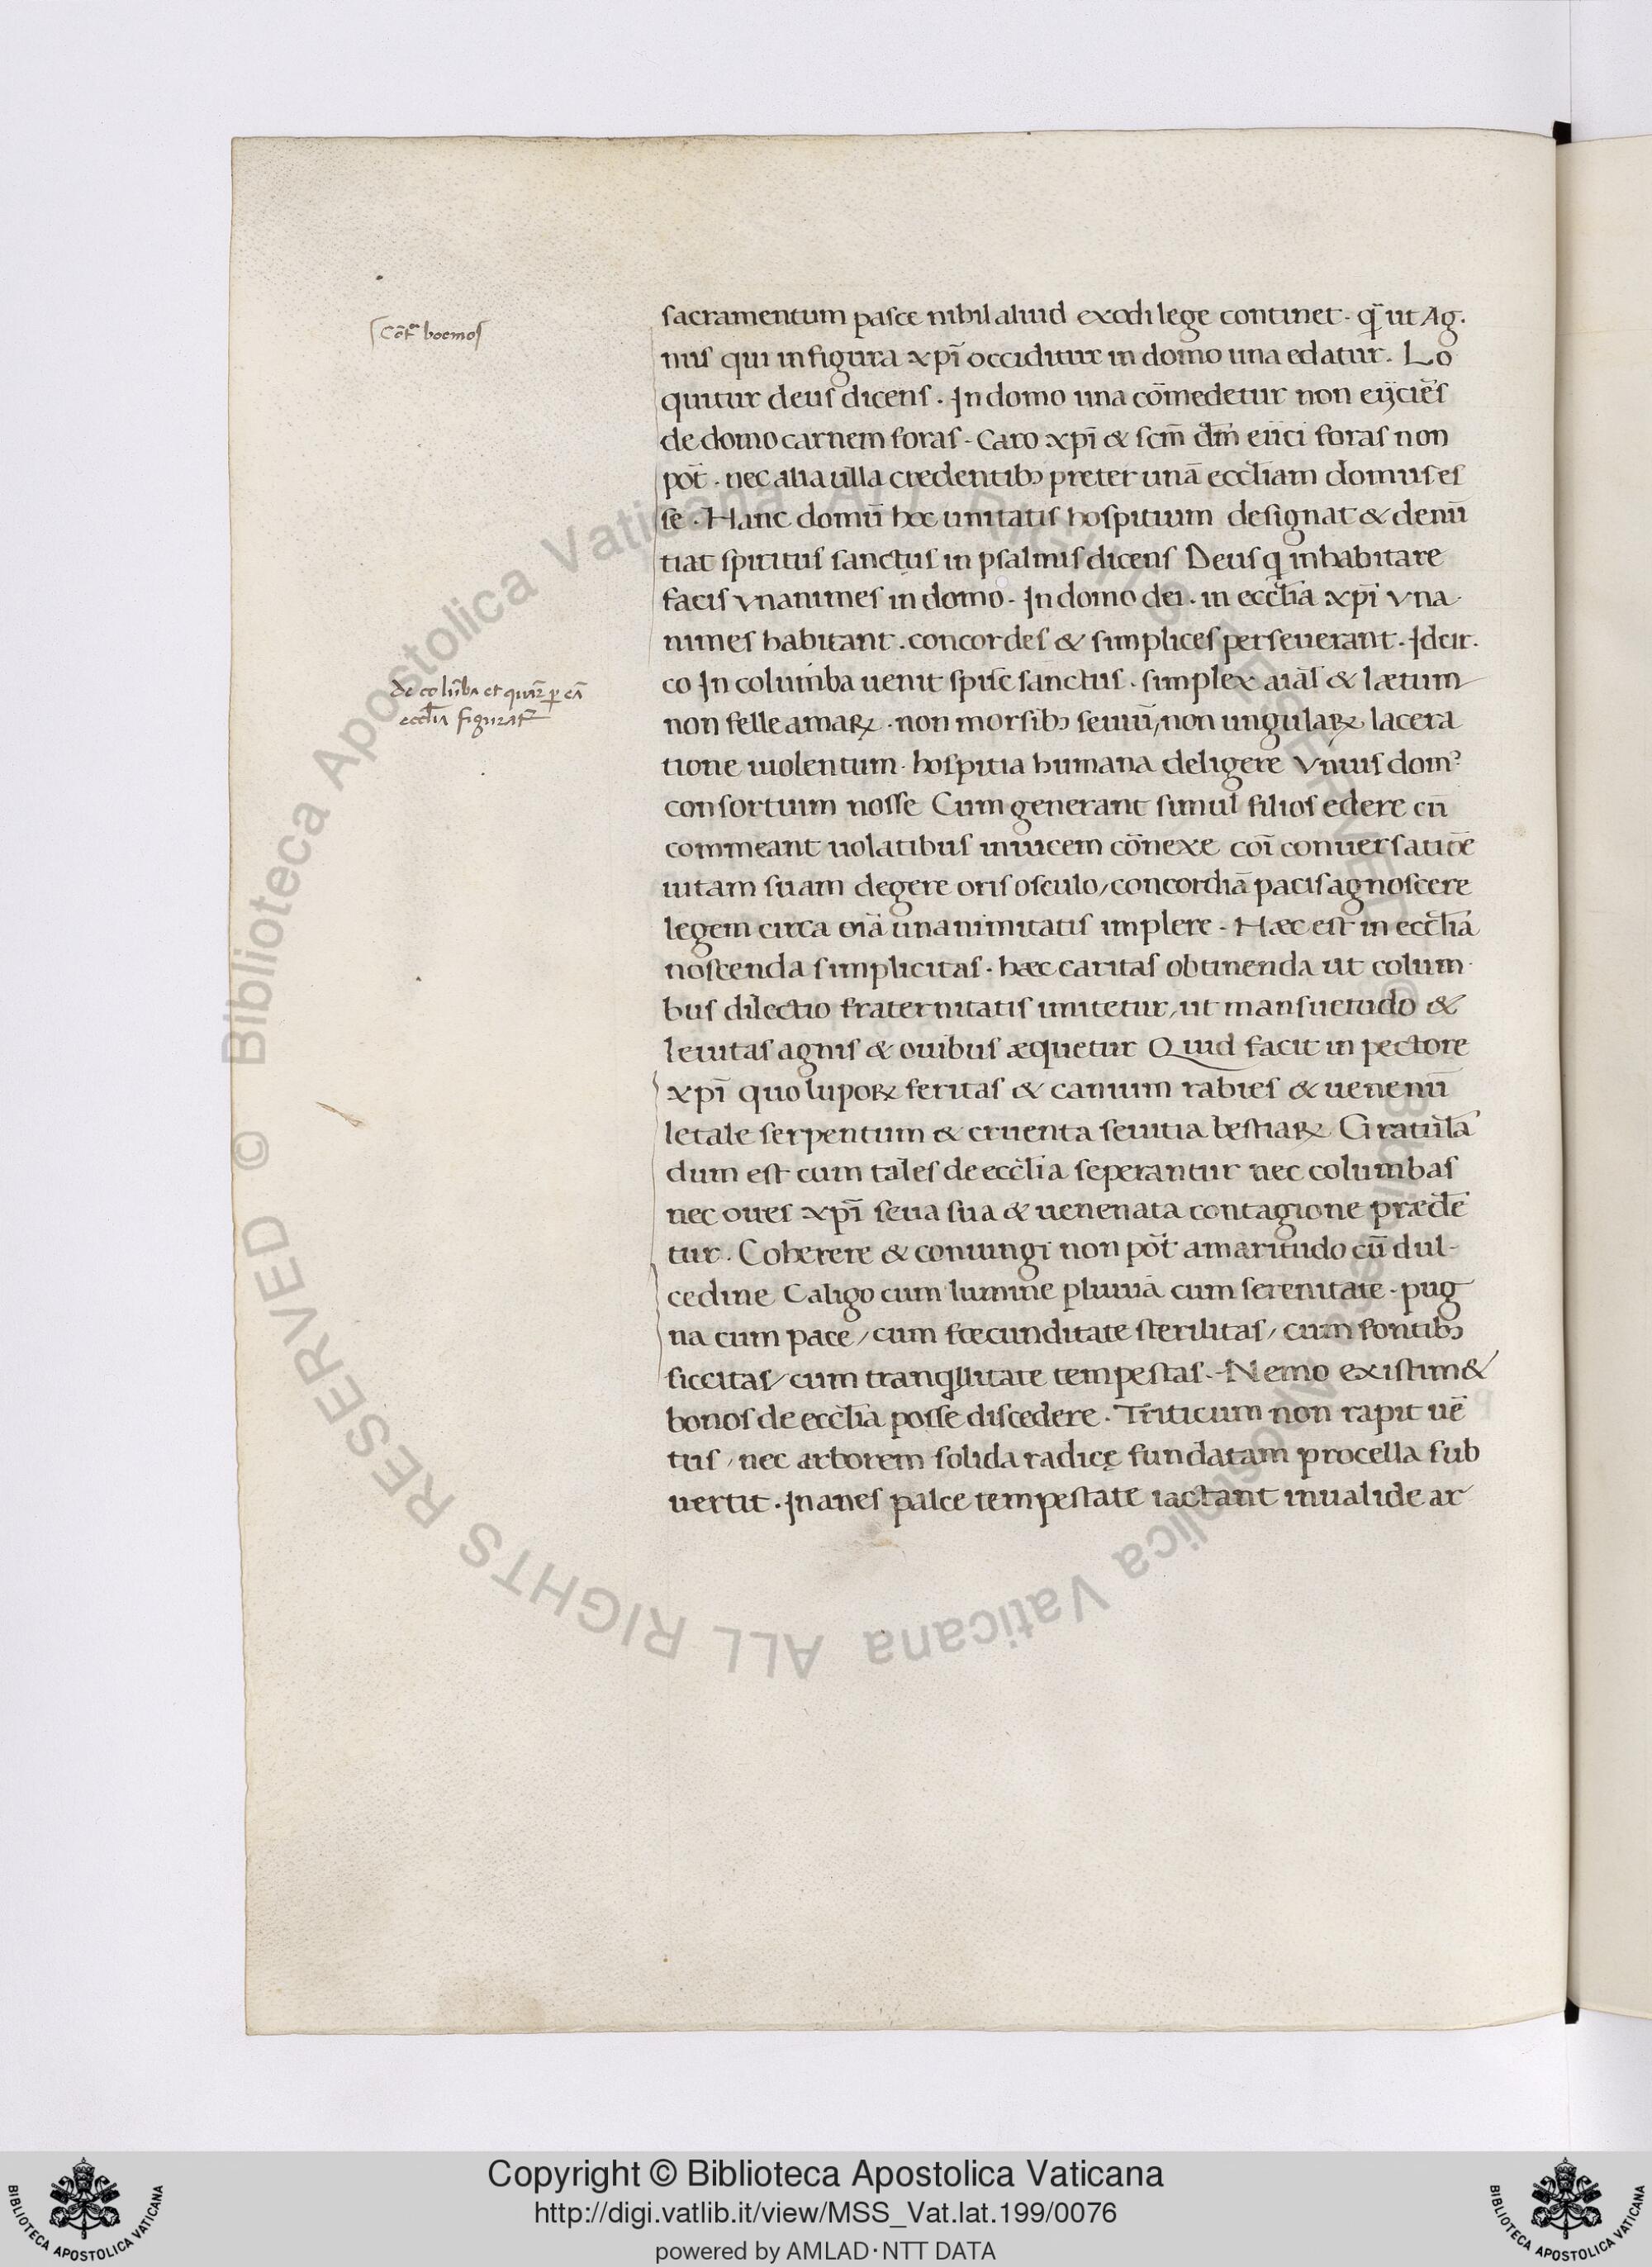 Cōtͣ boemos
sacramentum pasce nihil aliud exodi lege continet · q̄ ut Ag·
nus qui in figura xp̄i occiditur in domo una edatur. Lo
quitur deus dicens . In domo una cōmedetur non eijciēs
de domo carnem foras · Caro xp̄i & scm̄ dm̄ eiici foras non
pōt · nec alia ulla credentibꝫ preter unā eccl̄iam domus es
se . Hanc domū hoc unitatis hospitium designat & denū
tiat spiritus sanctus in psalmis dicens Deus q inhabitare
facis vnanimes in domo · In domo dei · in eccl̄ia xp̄i vna
nimes habitant . concordes & simplices perseuerant . Idcir.
de colūba et quāꝛ ꝑ eā
eccl̄ia figuratꝛ
co In columba uenit spūc sanctus · simplex aiāl & lætum
non felle amaꝝ · non morsibꝫ seuiū, non ungulaꝝ lacera
tione uiolentum · hospitia humana deligere Vnius domꝰ
consortium nosse Cum generant simul filios edere cū
commeant uolatibus inuicem cōnexe coī conuersatiōe
uitam suam degere oris osculo, concordiā pacis agnoscere
legem circa oīa unanimitatis implere · Hæc est in eccl̄ia
noscenda simplicitas · hæc caritas obtinenda ut colum·
bus dilectio fraternitatis imitetur, ut mansuetudo &
leuitas agnis & ouibus æquetur Quid facit in pectore
xp̄i quo lupoꝝ feritas & canium rabies & uenenū
letale serpentum & cruenta seuitia bestiaꝝ Gratulā
dum est cum tales de eccl̄ia seperantur nec columbas
nec oues xp̄i seua sua & uenenata contagione prædē
tur . Coherere & coniungi non pōt amaritudo cū dul-
cedine Caligo cum lumine pluuia cum serenitate · pug
na cum pace, cum fœcunditate sterilitas, cum fontibꝫ
siccitas, cum tranqllitate tempestas · Nemo existim&
bonos de eccl̄ia posse discedere · Triticum non rapit uē
tus, nec arborem solida radice fundatam procella sub
uertit . Inanes palce tempestate iactant inualide ar
© Biblioteca Apostolica Vaticana ALL RIGHTS RESERVED © Biblioteca Apostolica Vaticana ALL RIGHTS RESERVED
BIBLIOTECA APOSTOLICA VATICANA
Copyright © Biblioteca Apostolica Vaticana
http://digi.vatlib.it/view/MSS_Vat.lat.199/0076
powered by AMLAD·NTT DATA
BIBLIOTECA APOSTOLICA VATICANA